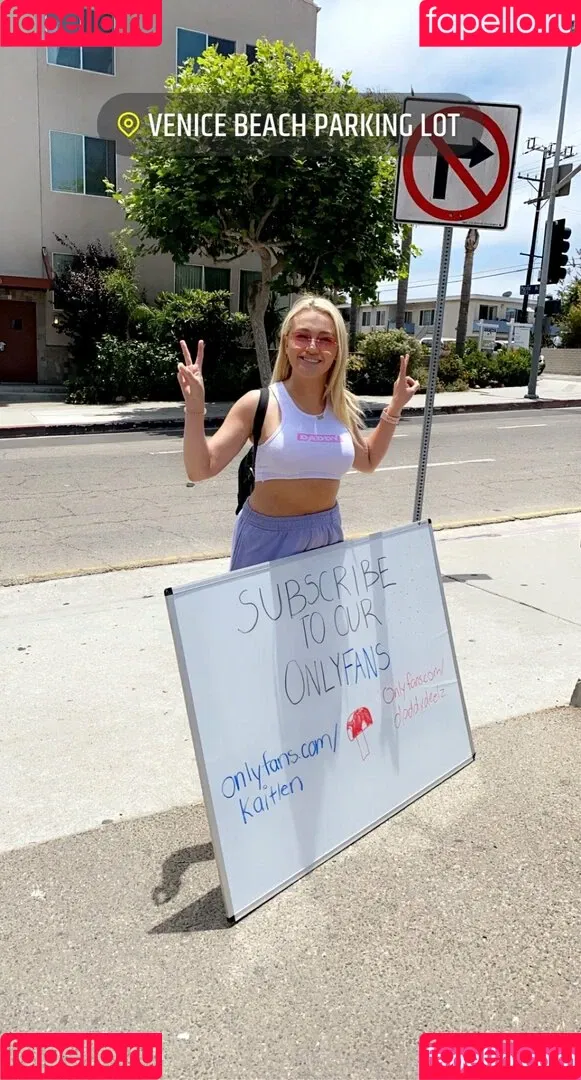 fapello.ru
fapello.ru
VENICE BEACH PARKING LOT
SUBSCRIBE
TO OUR
ONLYFANS
onlyfans.com/
daddydeelz
onlyfans.com/
Kaitlen
fapello.ru
fapello.ru